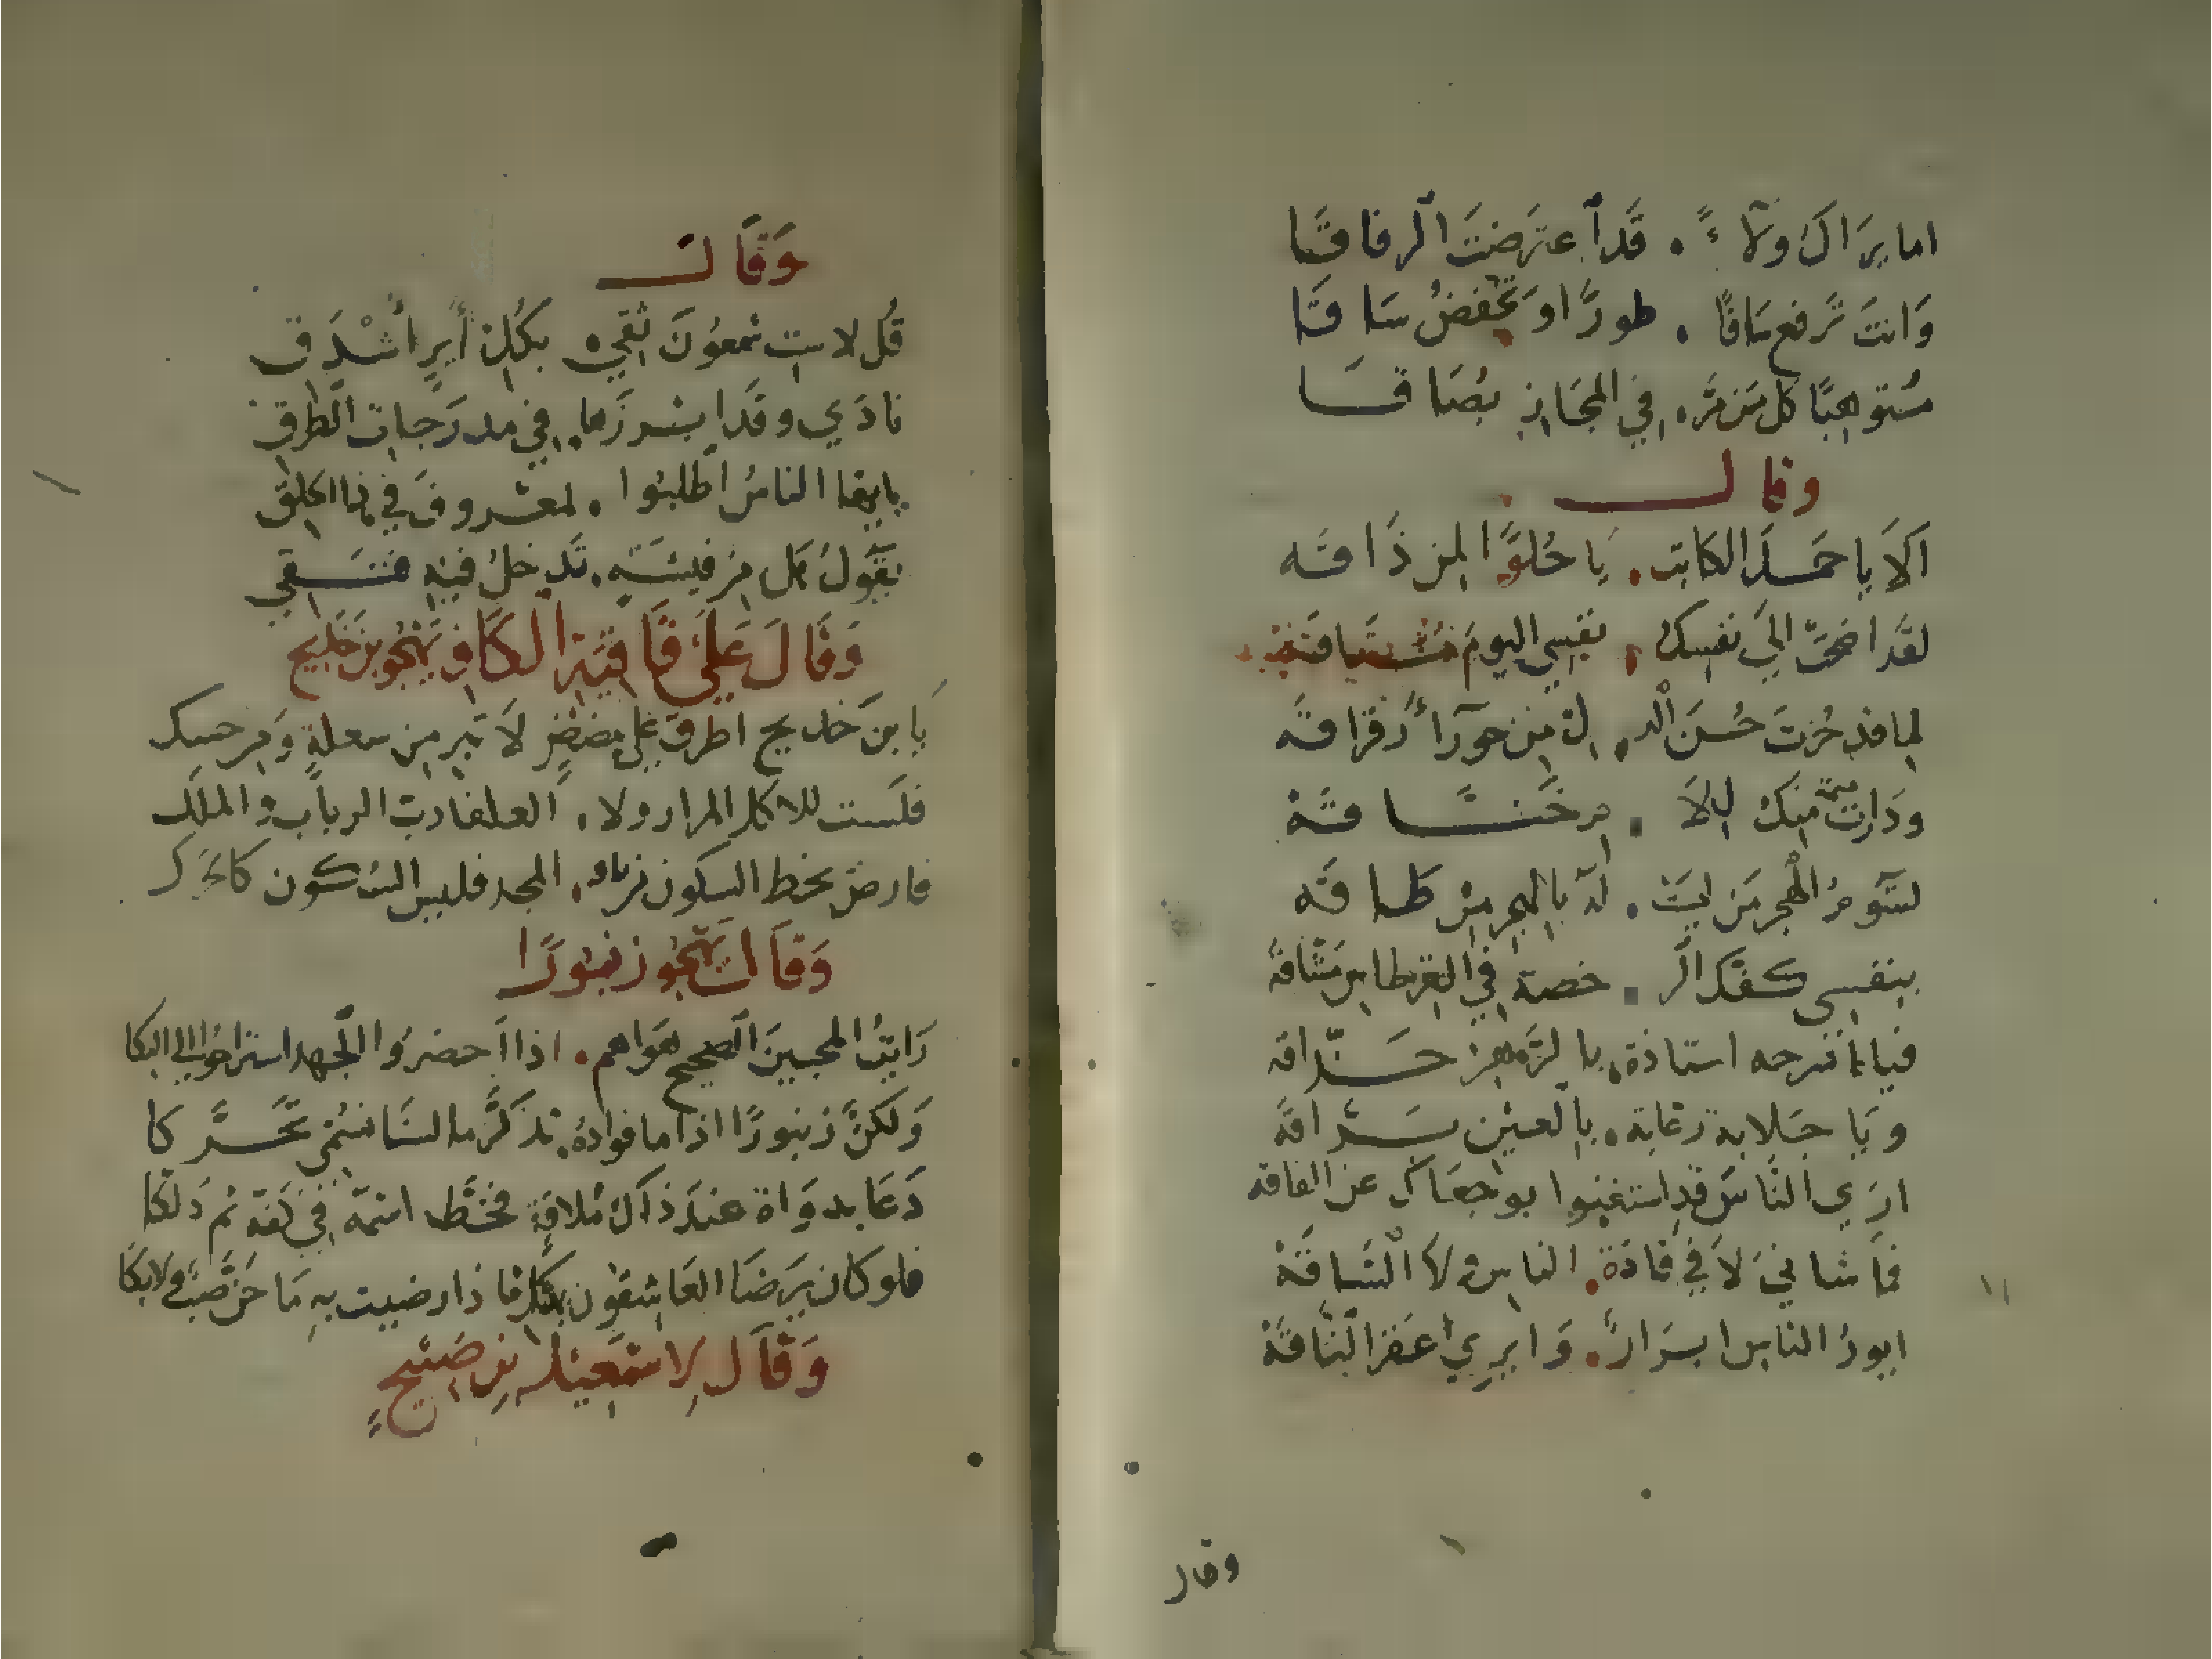 اما يراك ولآءً . قد اعترضت الرفاقا
وانت ترفع ساقًا . طورًا وتخفض ساقا
مستوهبًا كل من مر . في المجاز بصاقا
وقال
الا يا حمد الكاتب . يا حلو المذاقه
لقد اضحت الى نفسك . نفسي اليوم مشتاقه
لما قد حزت حسن الد . ل من حورآء رقراقه
ودارت منك الا
لسوم الهجر من ليست . له بالهجر من طاقه
بنفسي كفك الر . خصة في القرطاس مشاقه
فيا نرجه استاذة . بالزمر حذاقه
ويا جلابة . بالعين سراقه
ارى الناس قد استغنوا بوجعاك عن الفاقه
فما شاني لا في قادة . الناس ولا الساقه
ايور الناس ابرار . وايري اعقر الناقة
وقال
وقال
قل لاست شمعون ثقي . بكل أير أشدق
نادي وقد ابرزها . في مدرجات الطرق
يا ايها الناس اطلبوا . لمعروف في الخلق
يقول هل من فيشة . تدخل فيه فتقي
وقال على قافية الكاف يهجو بن خديج
يا بن خديج اطرق على مضض لا تبر من سعلة ومن حسك
فلست للاكل المرار ولا . العلفا رب الرباب والملك
فارض بخط السكون . المجد فليس السكون كا
وقال يهجو زنبورًا
رايت المحبين الصحيح هواهم . اذا احضروا الجهد استراحوا الى البكا
ولكن زنبورًا اذا ما فواده . تذكر ما لسانيه تحركا
دعا بدواة عند ذاك ملاقة فخط اسمه في كفه ثم دلكا
فلو كان يرضا العاشقون بكل ما ذا رضيت به ما حن صب ولا بكا
وقال لاسمعيل بن صبيح